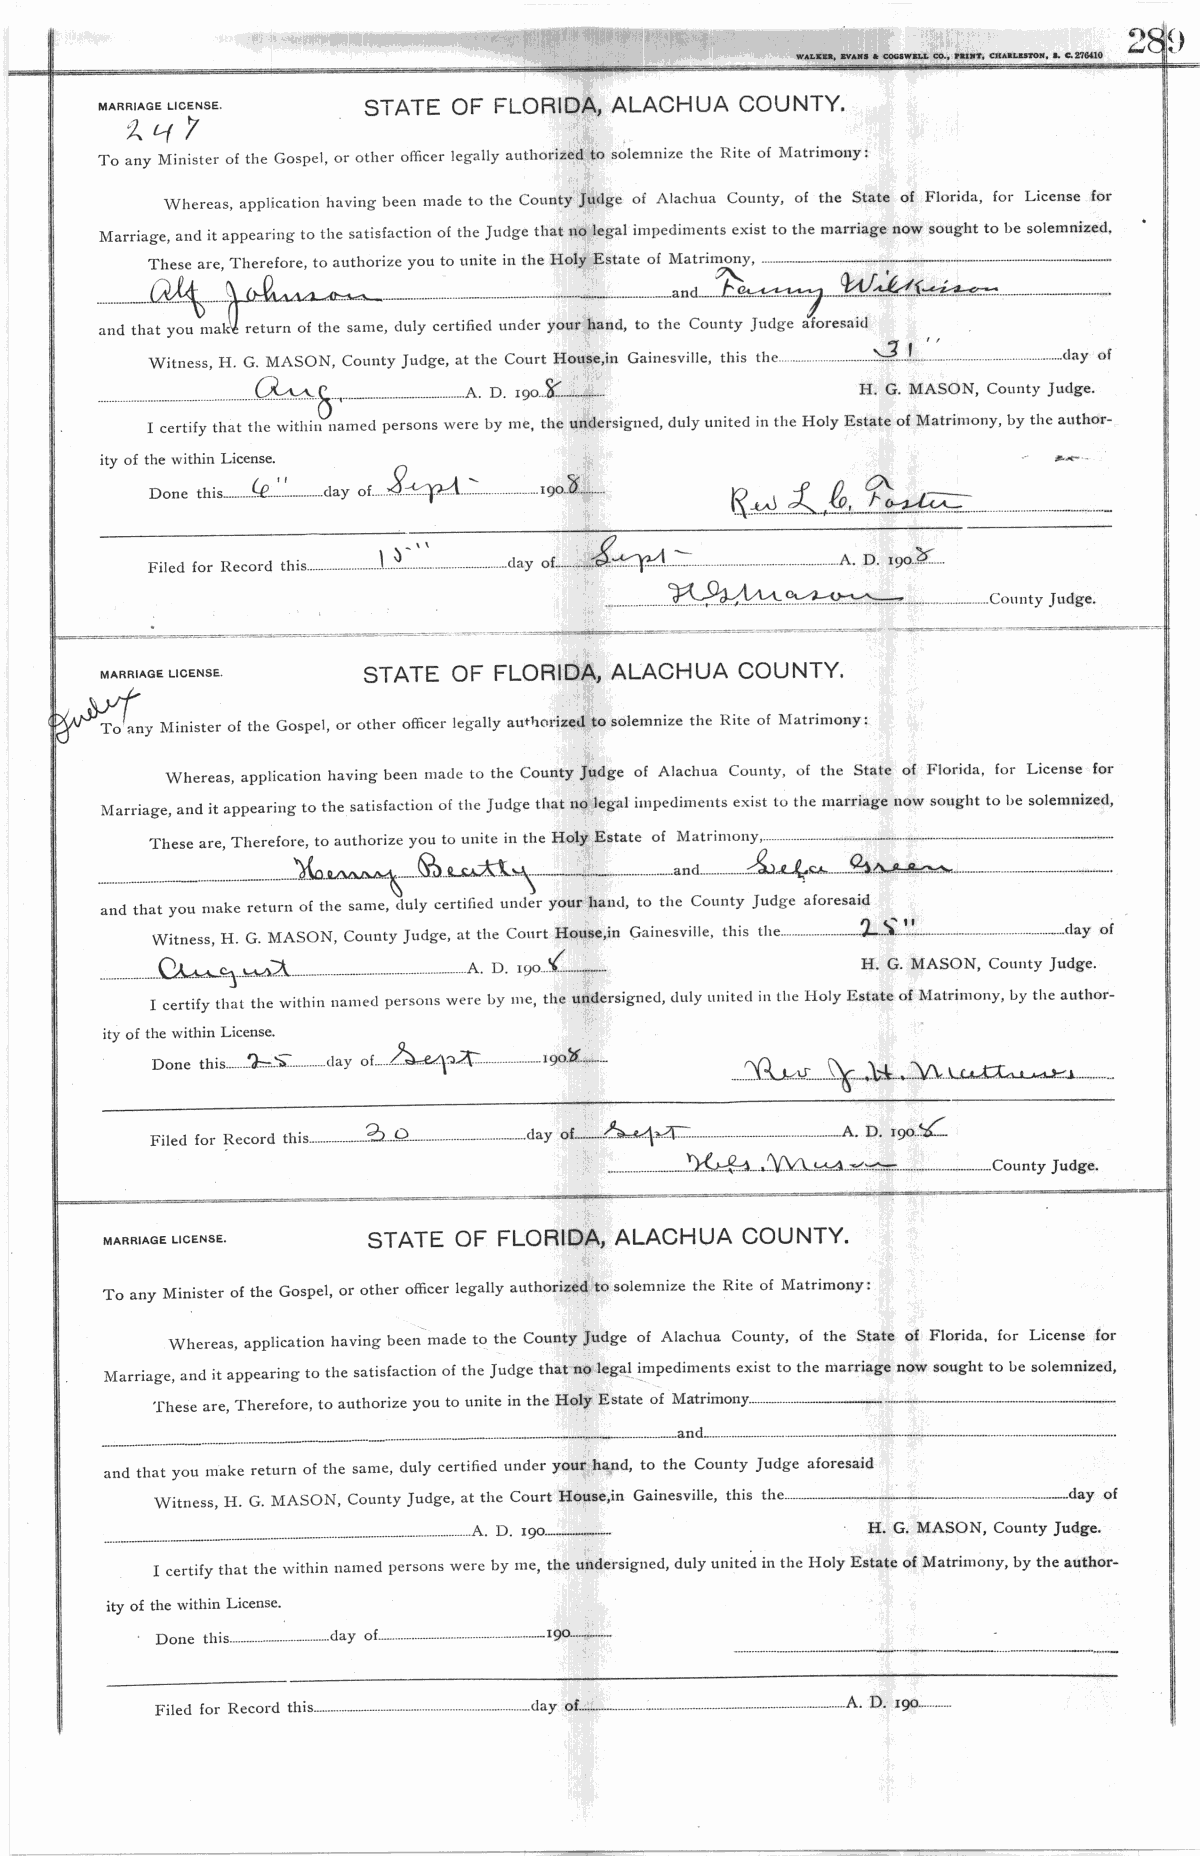 289
WALKER, EVANS & COGSWELL CO., PRINT, CHARLESTON, S. C. 276410
MARRIAGE LICENSE. STATE OF FLORIDA, ALACHUA COUNTY.
247
To any Minister of the Gospel, or other officer legally authorized to solemnize the Rite of Matrimony:
Whereas, application having been made to the County Judge of Alachua County, of the State of Florida, for License for
Marriage, and it appearing to the satisfaction of the Judge that no legal impediments exist to the marriage now sought to be solemnized,
These are, Therefore, to authorize you to unite in the Holy Estate of Matrimony,
Alf Johnson and Fanny Wilkinson
and that you make return of the same, duly certified under your hand, to the County Judge aforesaid
Witness, H. G. MASON, County Judge, at the Court House,in Gainesville, this the 31" day of
Aug. A. D. 1908 H. G. MASON, County Judge.
I certify that the within named persons were by me, the undersigned, duly united in the Holy Estate of Matrimony, by the author-
ity of the within License.
Done this 6" day of Sept- 1908
Rev L. C. Foster
Filed for Record this 15" day of Sept- A. D. 1908
H.G.Mason County Judge.
MARRIAGE LICENSE. STATE OF FLORIDA, ALACHUA COUNTY.
Index
To any Minister of the Gospel, or other officer legally authorized to solemnize the Rite of Matrimony:
Whereas, application having been made to the County Judge of Alachua County, of the State of Florida, for License for
Marriage, and it appearing to the satisfaction of the Judge that no legal impediments exist to the marriage now sought to be solemnized,
These are, Therefore, to authorize you to unite in the Holy Estate of Matrimony,
Henry Beatty and Green
and that you make return of the same, duly certified under your hand, to the County Judge aforesaid
Witness, H. G. MASON, County Judge, at the Court House,in Gainesville, this the 25" day of
August A. D. 1908 H. G. MASON, County Judge.
I certify that the within named persons were by me, the undersigned, duly united in the Holy Estate of Matrimony, by the author-
ity of the within License.
Done this 25 day of Sept 1908
Rev J. H. Matthews
Filed for Record this 30 day of Sept A. D. 1908
H.G. Mason County Judge.
MARRIAGE LICENSE. STATE OF FLORIDA, ALACHUA COUNTY.
To any Minister of the Gospel, or other officer legally authorized to solemnize the Rite of Matrimony:
Whereas, application having been made to the County Judge of Alachua County, of the State of Florida, for License for
Marriage, and it appearing to the satisfaction of the Judge that no legal impediments exist to the marriage now sought to be solemnized,
These are, Therefore, to authorize you to unite in the Holy Estate of Matrimony
and
and that you make return of the same, duly certified under your hand, to the County Judge aforesaid
Witness, H. G. MASON, County Judge, at the Court House,in Gainesville, this the day of
A. D. 190 H. G. MASON, County Judge.
I certify that the within named persons were by me, the undersigned, duly united in the Holy Estate of Matrimony, by the author-
ity of the within License.
Done this day of 190
Filed for Record this day of A. D. 190